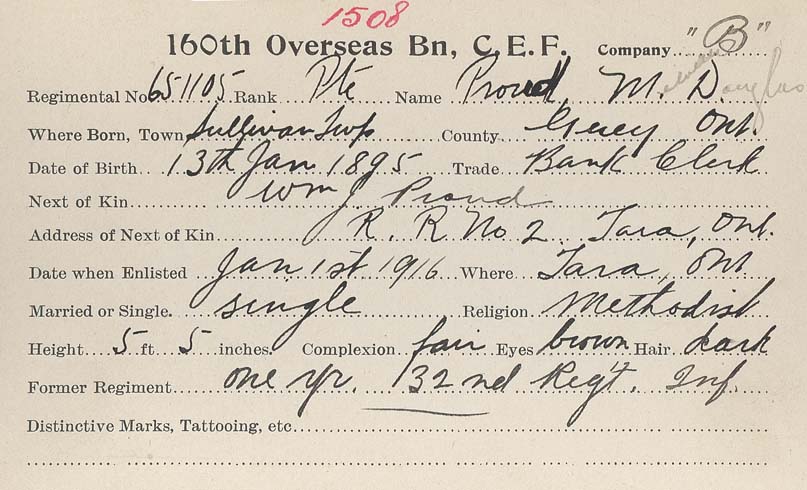 1508
160th Overseas Bn, C.E.F. Company "B"
Regimental No 651105 Rank Pte Name Proud, M. Douglas
Where Born, Town Sullivan Twp County Grey Ont.
Date of Birth 13th Jan 1895 Trade Bank Clerk
Next of Kin Wm J. Proud
Address of Next of Kin R. R No 2 Tara, Ont.
Date when Enlisted Jan 1st 1916 Where Tara, Ont.
Married or Single. single Religion Methodist
Height 5 ft 5 inches. Complexion fair Eyes brown Hair dark
Former Regiment one yr. 32nd Reg't. Inf.
Distinctive Marks, Tattooing, etc